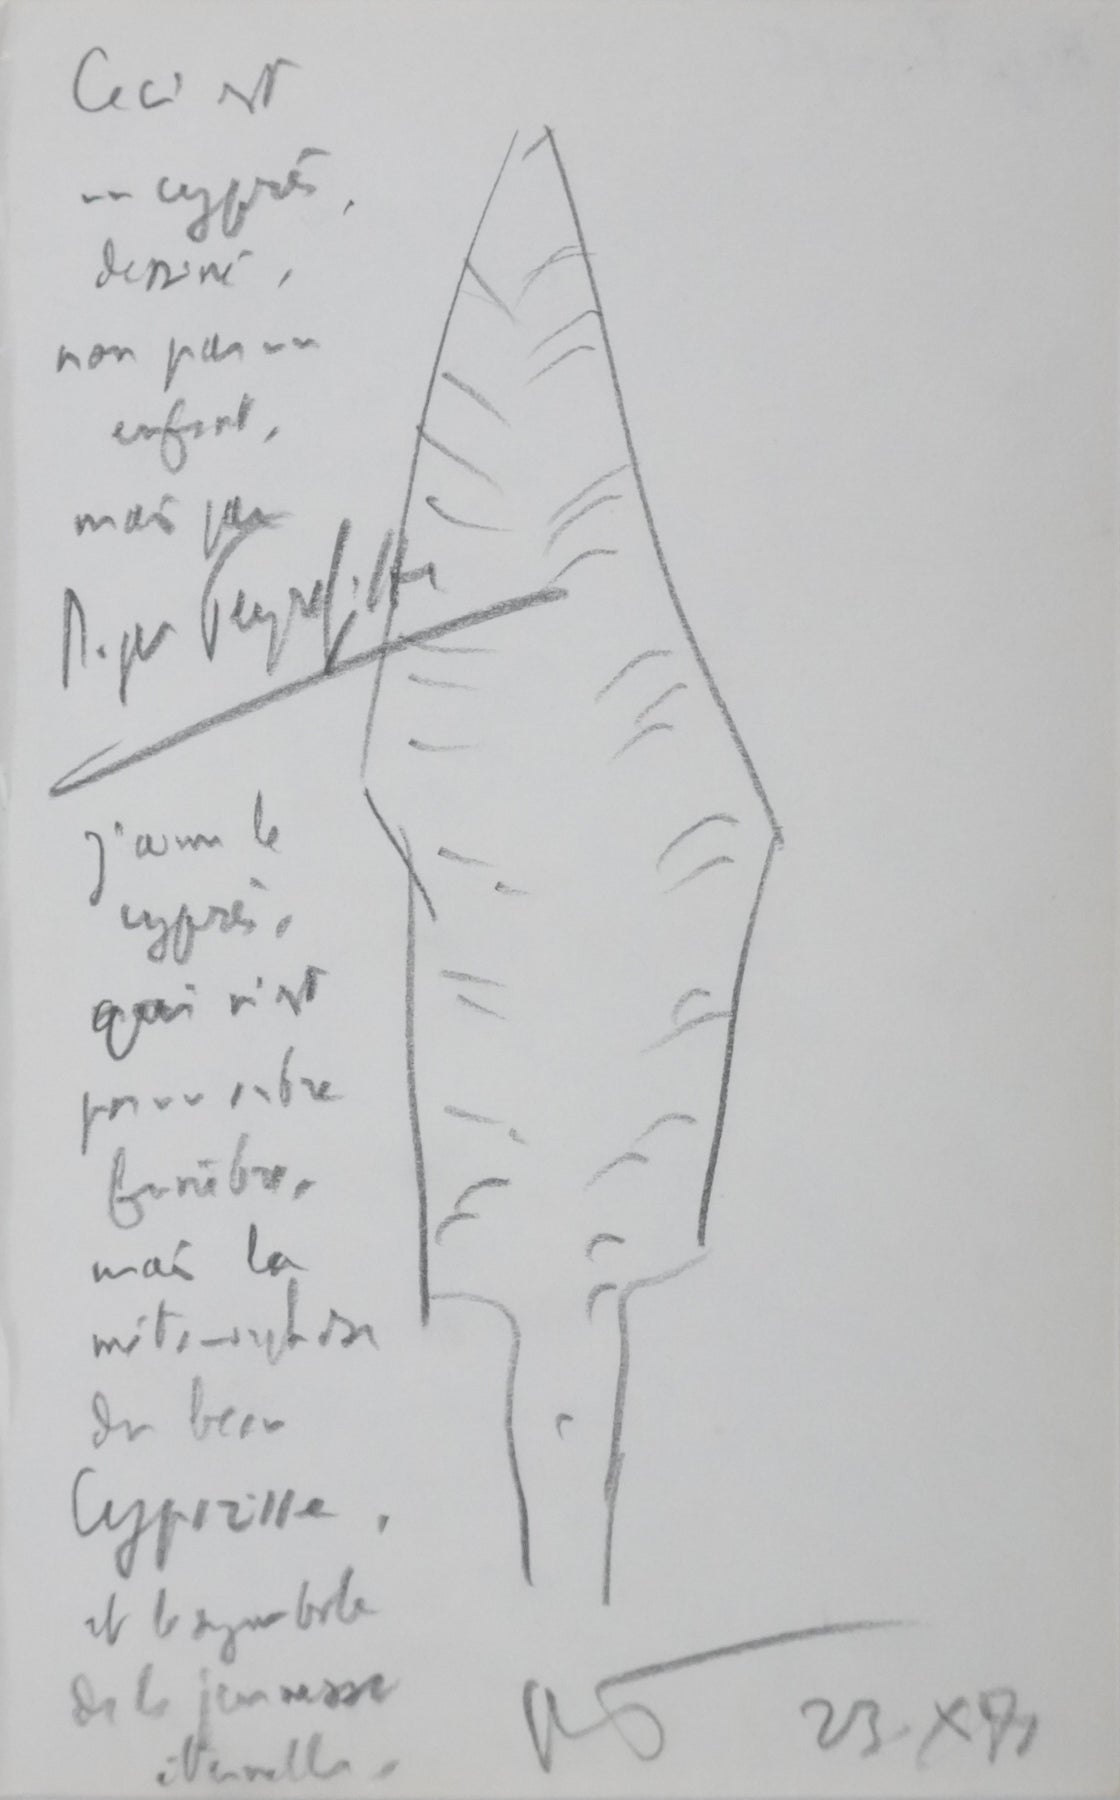 Ceci est
un cyprès,
dessiné,
non par un
enfant,
mais par
Roger Peyrefitte
J'aime le
cyprès,
qui n'est
pas un arbre
funèbre,
mais la
métamorphose
du beau
Cyparisse,
et le symbole
de la jeunesse
éternelle.
23. X